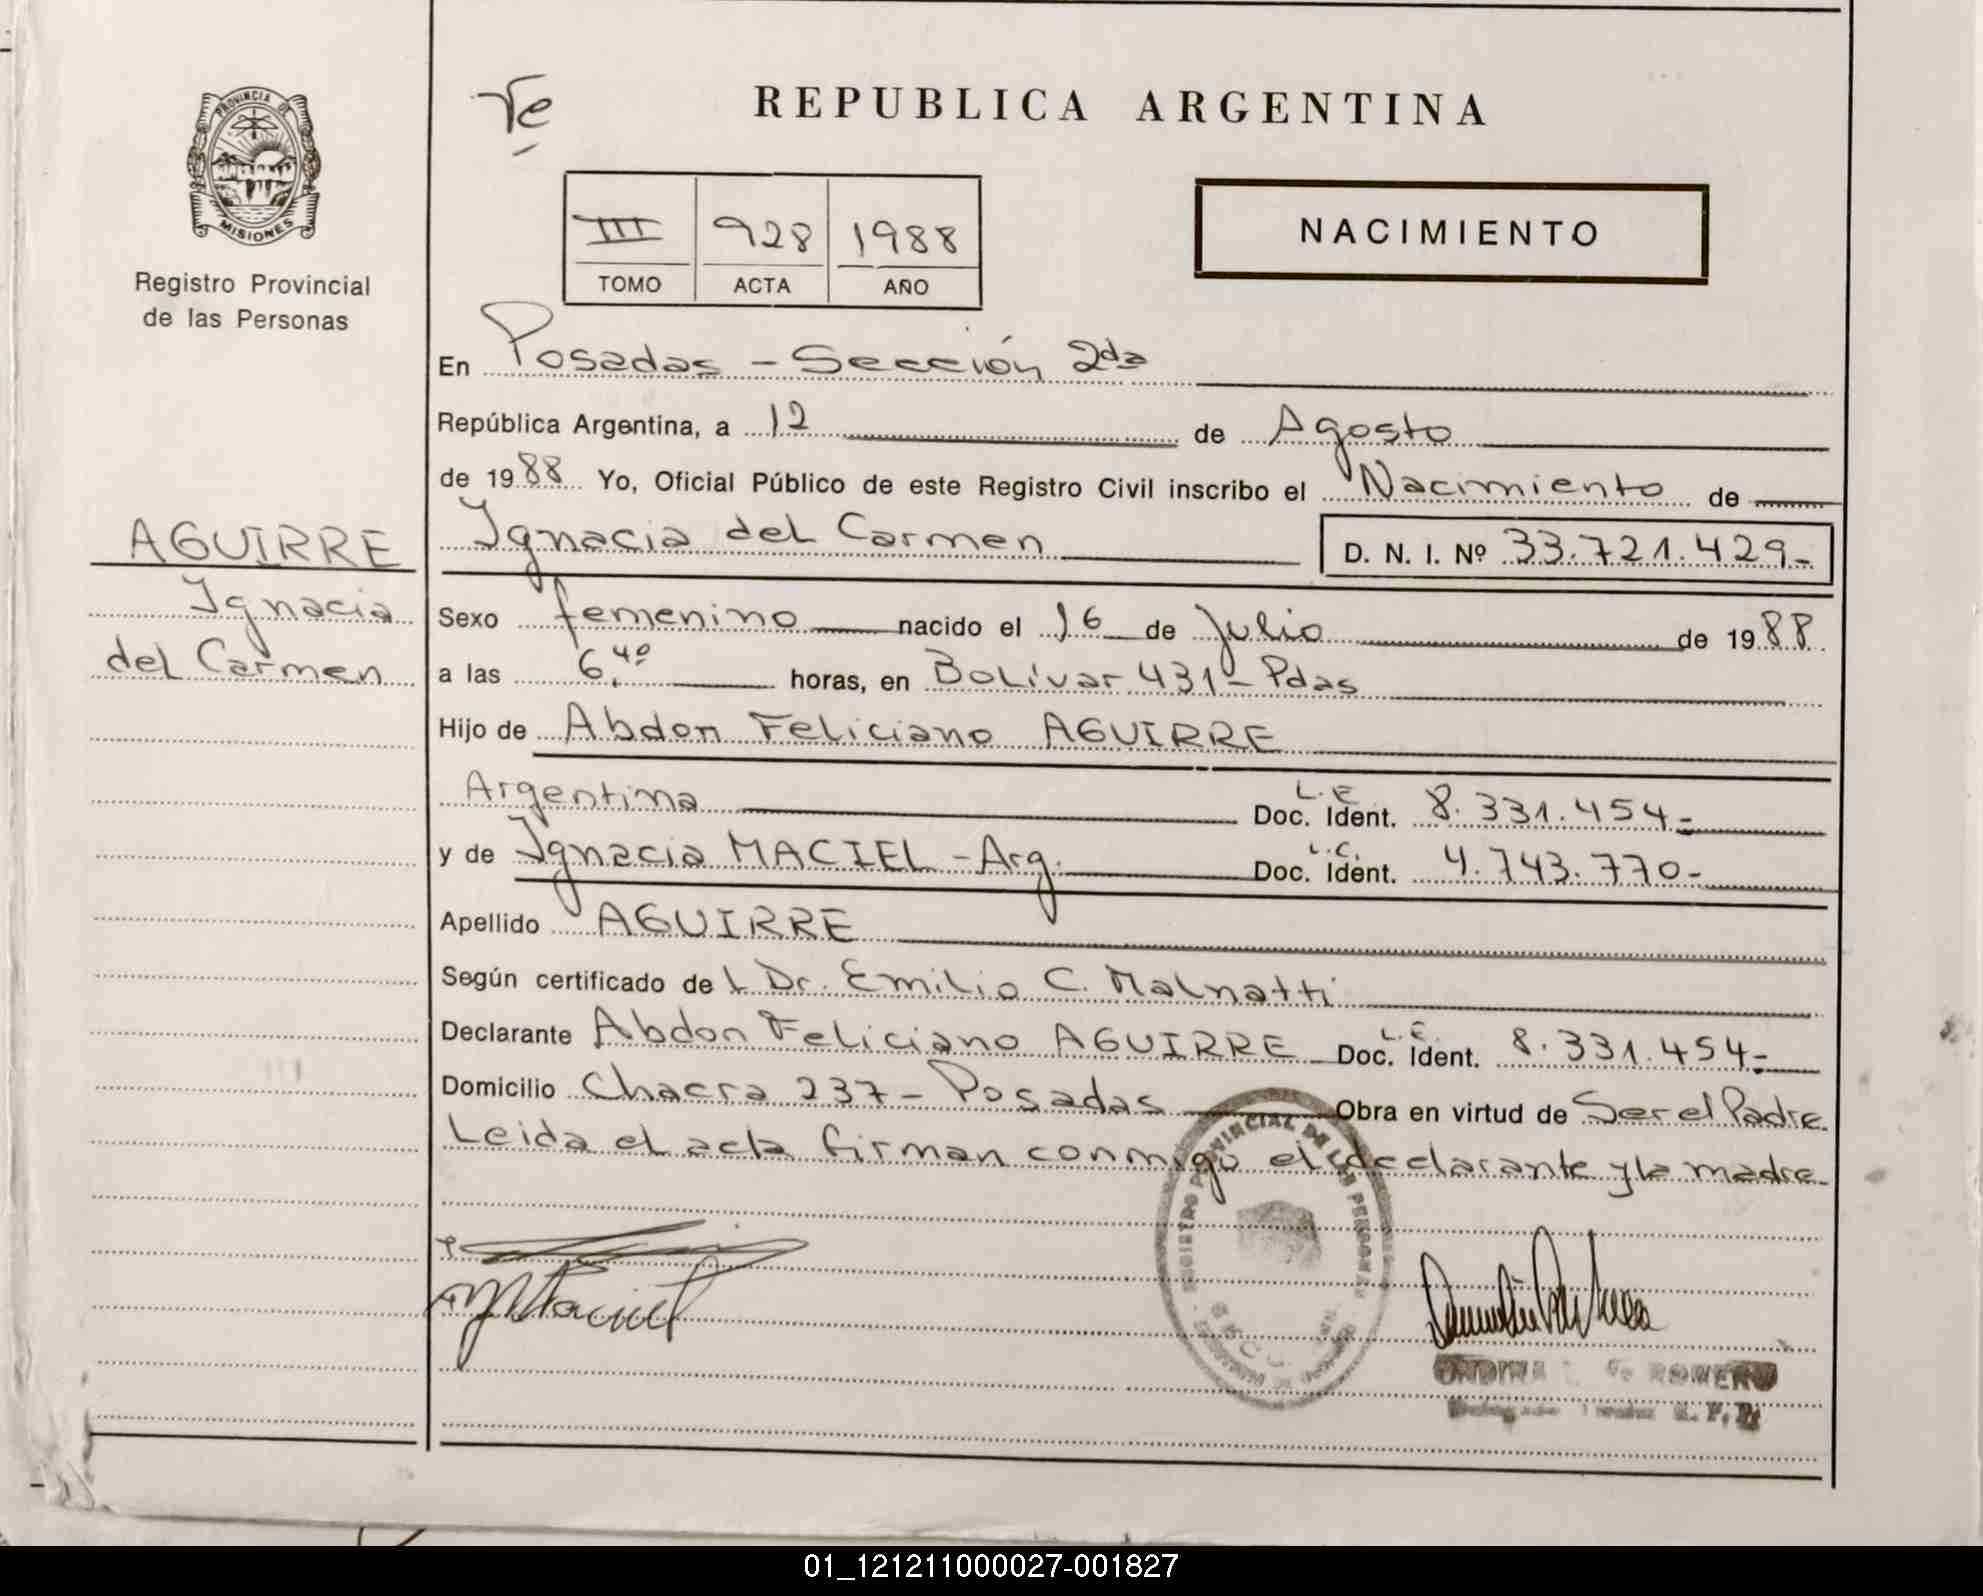 REPUBLICA ARGENTINA
PROVINCIA DE
MISIONES
Registro Provincial
de las Personas
III 928 1988
TOMO ACTA AÑO
NACIMIENTO
En Posadas - Sección 2da
República Argentina, a 12 de Agosto
de 1988 Yo, Oficial Público de este Registro Civil inscribo el Nacimiento de
AGUIRRE
Ignacia
del Carmen
Ignacia del Carmen D. N. I. Nº 33.721.429-
Sexo femenino nacido el 16 de Julio de 1988
a las 6,40 horas, en Bolivar 431 - Pdas
Hijo de Abdon Feliciano AGUIRRE
Argentina L.E. Doc. Ident. 8.331.454-
y de Ignacia MACIEL - Arg. L.C. Doc. Ident. 4.743.770-
Apellido AGUIRRE
Según certificado de L Dr. Emilio C. Malnatti
Declarante Abdon Feliciano AGUIRRE L.E. Doc. Ident. 8.331.454-
Domicilio Chacra 237 - Posadas Obra en virtud de Ser el Padre
Leida el acta firman conmigo el declarante y la madre
REGISTRO PROVINCIAL DE LAS PERSONAS
ROMERO
01_121211000027-001827